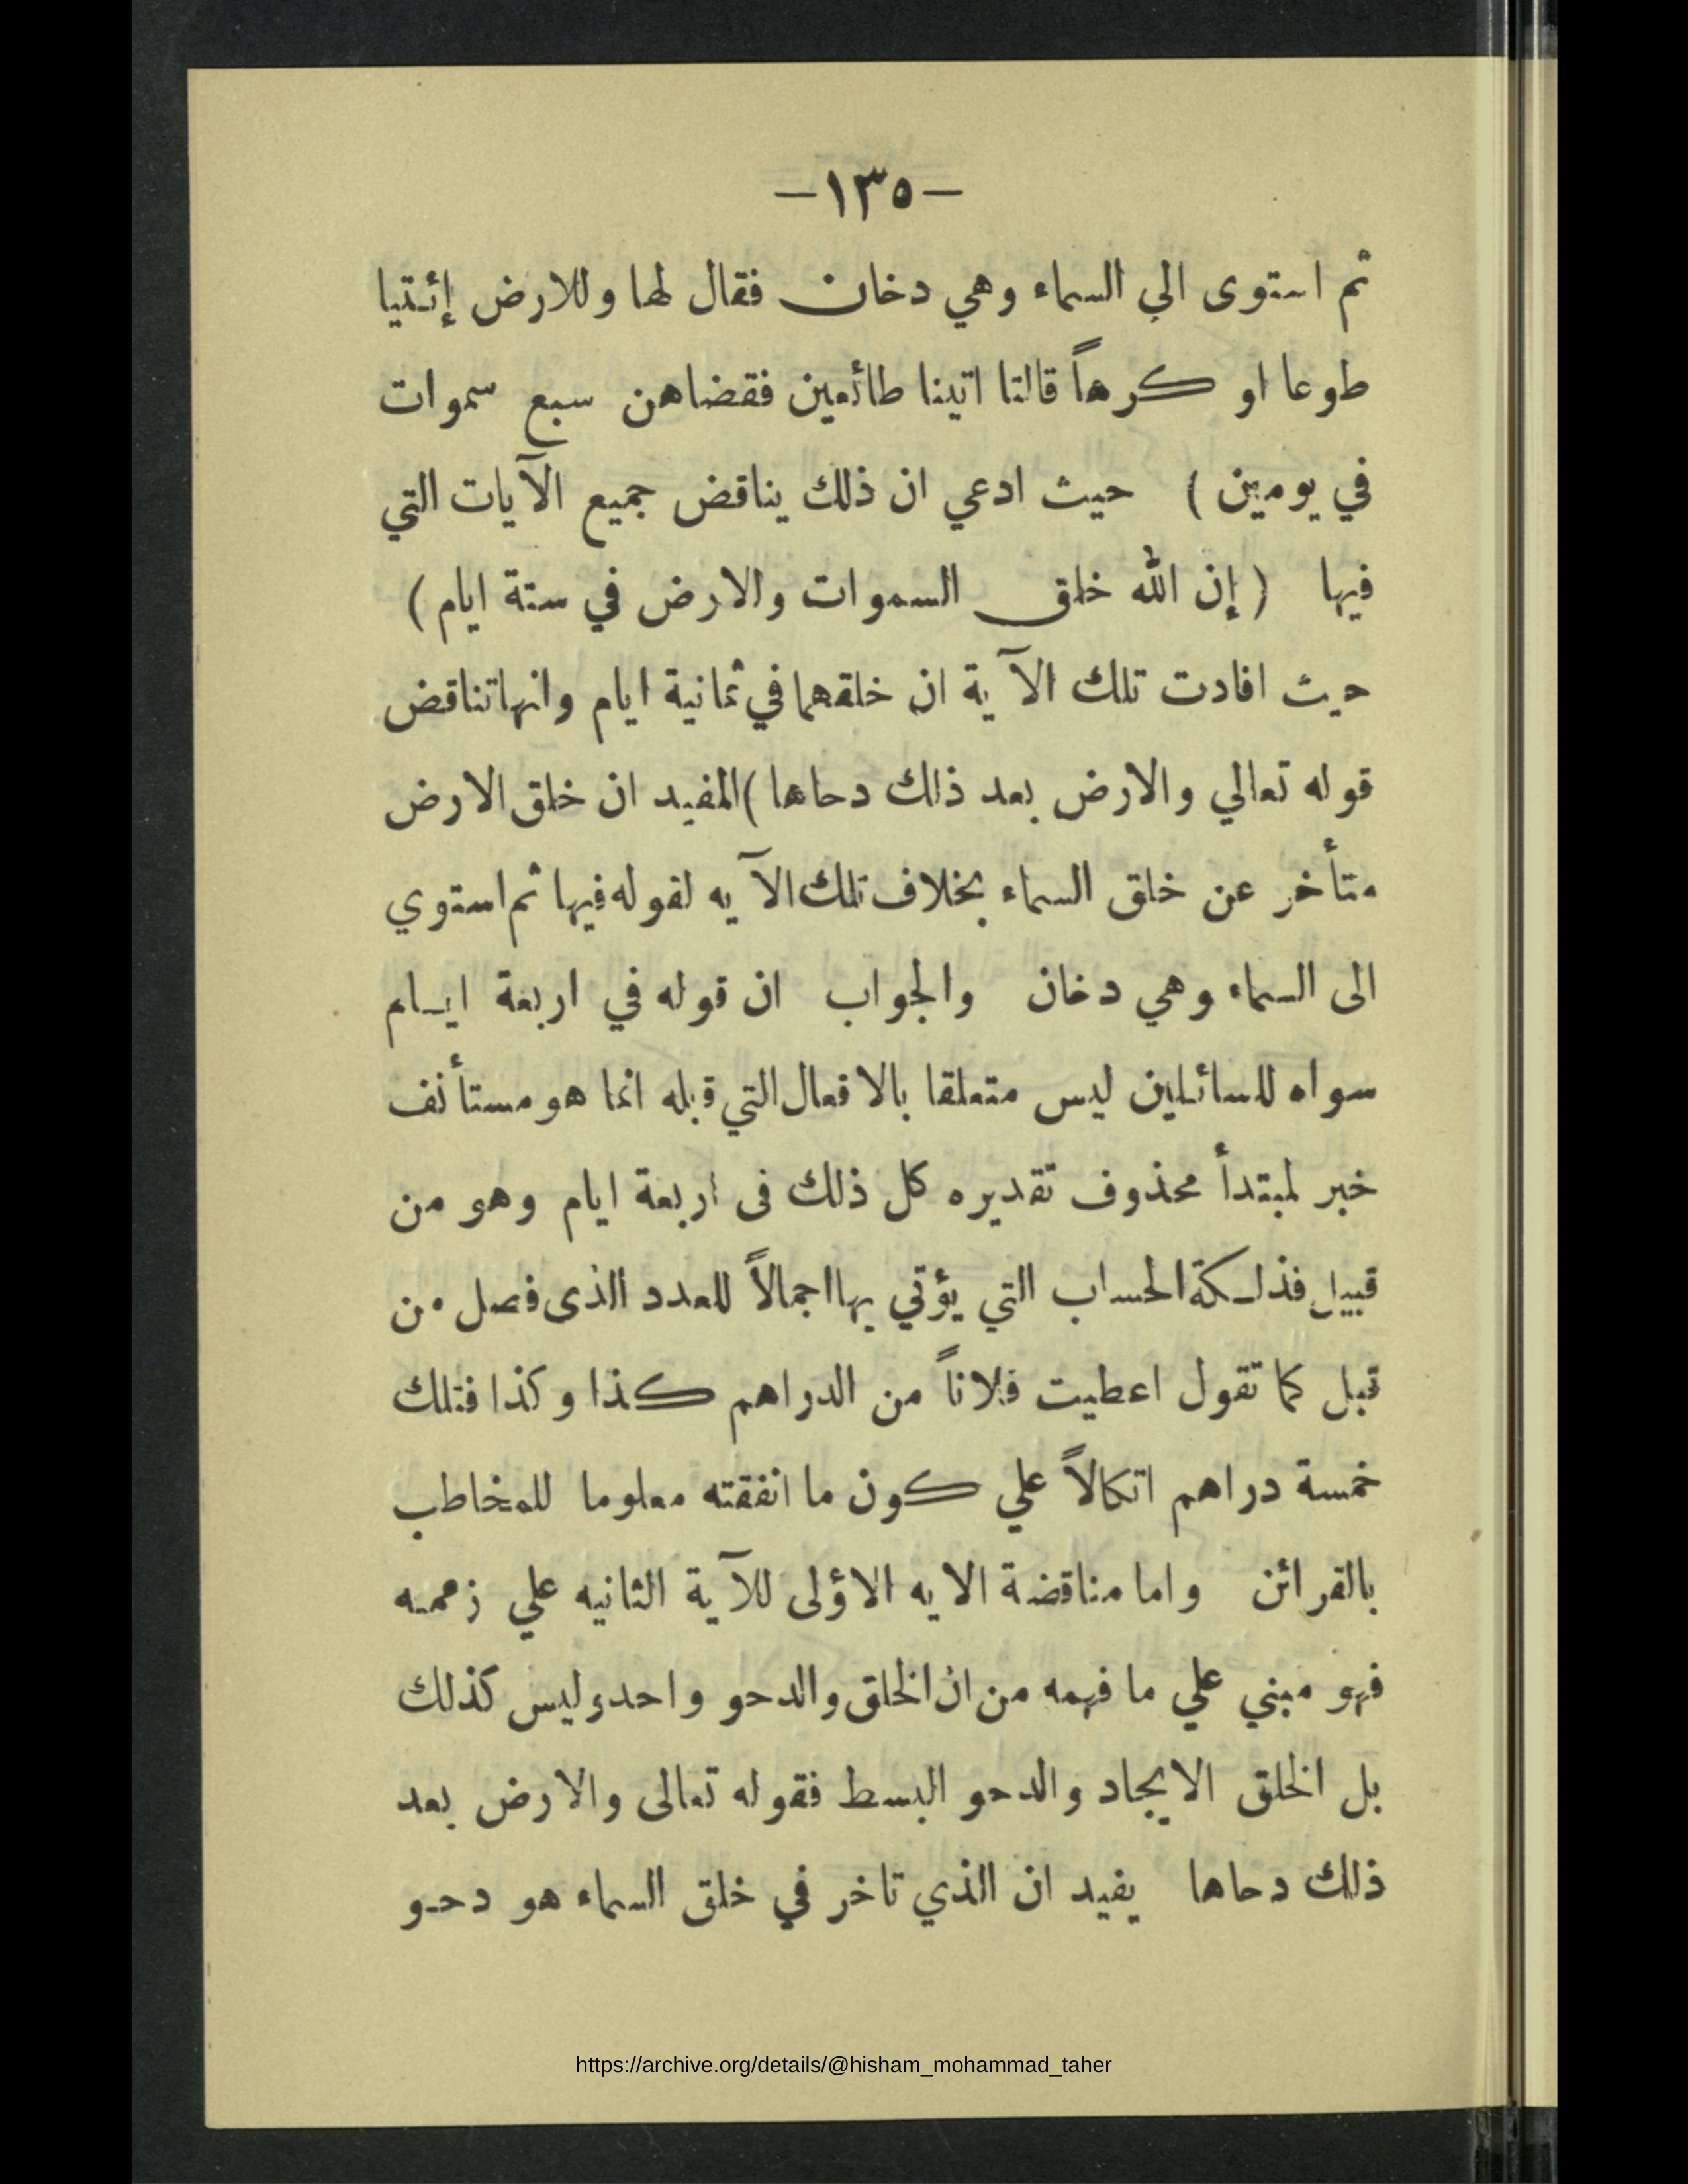 –١٣٥–
ثم استوى الي السماء وهي دخان فقال لها وللارض إئتيا
طوعا او كرهاً قالتا اتينا طائعين فقضاهن سبع سموات
في يومين ) حيث ادعي ان ذلك يناقض جميع الآيات التي
فيها ( إن الله خلق السموات والارض في ستة ايام )
حيث افادت تلك الآية ان خلقهما في ثمانية ايام وانها تناقض
قوله تعالي والارض بعد ذلك دحاها )المفيد ان خلق الارض
متأخر عن خلق السماء بخلاف تلك الآيه لقوله فيها ثم استوي
الى السماء وهي دخان والجواب ان قوله في اربعة ايام
سواه للسائلين ليس متعلقا بالافعال التي قبله انما هو مستأنف
خبر لمبتدأ محذوف تقديره كل ذلك فى اربعة ايام وهو من
قبيل فذلكة الحساب التي يؤتي بها اجمالاً للعدد الذى فصل من
قبل كما تقول اعطيت فلاناً من الدراهم كذا وكذا فتلك
خمسة دراهم اتكالاً علي كون ما انفقته معلوما للمخاطب
بالقرائن واما مناقضة الايه الاؤلى للآية الثانيه علي زعمه
فهو مبني علي ما فهمه من ان الخلق والدحو واحد وليس كذلك
بل الخلق الايجاد والدحو البسط فقوله تعالى والارض بعد
ذلك دحاها يفيد ان الذي تاخر في خلق السماء هو دحو
https://archive.org/details/@hisham_mohammad_taher